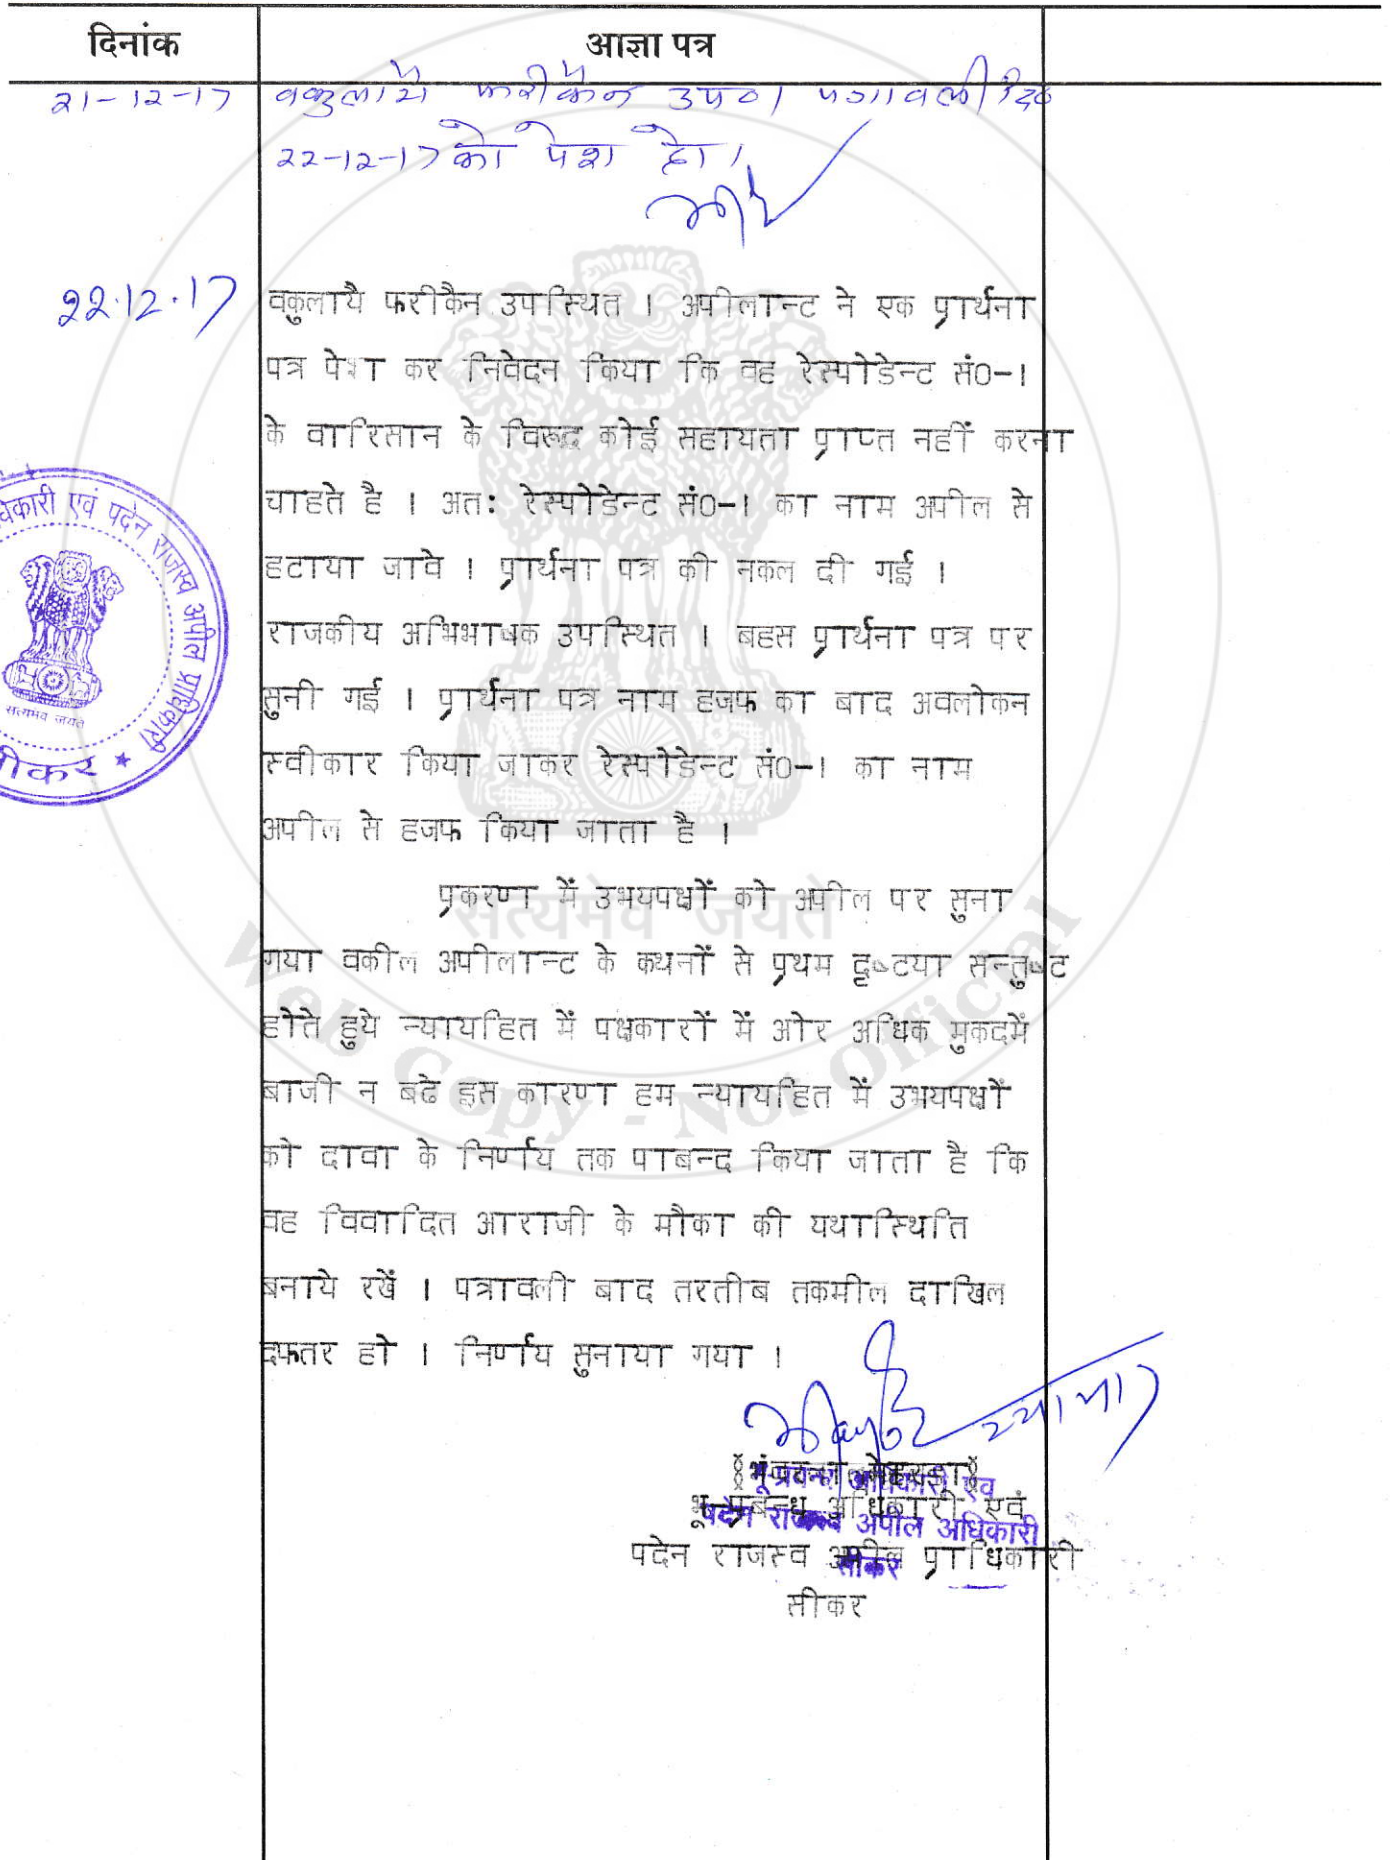 दिनांक
आज्ञा पत्र
21-12-17 वकुलाये फरीकैन उप0। पत्रावली दि0
22-12-17 को पेश हो।
22.12.17
वकुलायै फरीकैन उपस्थित । अपीलान्ट ने एक प्रार्थना
पत्र पेश कर निवेदन किया कि वह रेस्पोडेन्ट सं0-1
के वारिसान के विरूद्ध कोई सहायता प्राप्त नहीं करना
चाहते है । अतः रेस्पोडेन्ट सं0-1 का नाम अपील से
हटाया जावे । प्रार्थना पत्र की नकल दी गई ।
राजकीय अभिभाषक उपस्थित । बहस प्रार्थना पत्र पर
सुनी गई । प्रार्थना पत्र नाम हजफ का बाद अवलोकन
स्वीकार किया जाकर रेस्पोडेन्ट सं0-1 का नाम
अपील से हजफ किया जाता है ।
प्रकरण में उभयपक्षों को अपील पर सुना
गया वकील अपीलान्ट के कथनों से प्रथम दृष्टया सन्तुष्ट
होते हुये न्यायहित में पक्षकारों में ओर अधिक मुकदमें
बाजी न बढे इस कारण हम न्यायहित में उभयपक्षों
को दावा के निर्णय तक पाबन्द किया जाता है कि
वह विवादित आराजी के मौका की यथास्थिति
बनाये रखें । पत्रावली बाद तरतीब तकमील दाखिल
दफतर हो । निर्णय सुनाया गया ।
भू प्रबन्ध अधिकारी एवं
पदेन राजस्व अपील प्राधिकारी
सीकर
भू प्रबन्ध अधिकारी एवं
पदेन राजस्व अपील अधिकारी
सीकर
धिकारी एवं पदेन राजस्व अपील प्राधिकारी
सत्यमेव जयते
सीकर ★
सत्यमेव जयते
Web Copy - Not Official